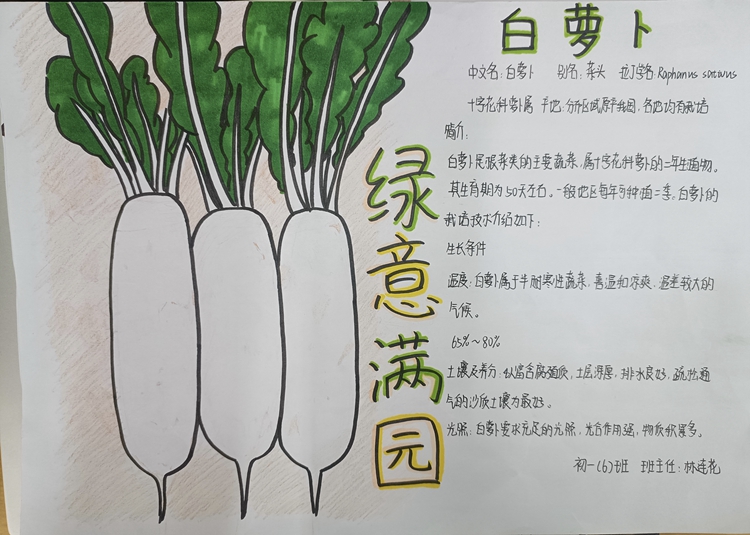 白萝卜
中文名:白萝卜 别名:菜头 拉丁学名:Raphanus sativus
十字花科萝卜属 产地:分布区域原产我国,各地均有栽培
简介:
白萝卜是根菜类的主要蔬菜,属十字花科萝卜的二年生植物。
其生育期为50天左右。一般地区每年可种植二季。白萝卜的
栽培技术介绍如下:
生长条件
温度:白萝卜属于半耐寒性蔬菜,喜温和凉爽,温差较大的
气候。
65%~80%
土壤及养分:以富含腐殖质,土层深厚,排水良好,疏松通
气的沙质土壤为最好。
光照:白萝卜要求充足的光照,光合作用强,物质积累多。
初一(6)班 班主任:林莲花
绿意满园